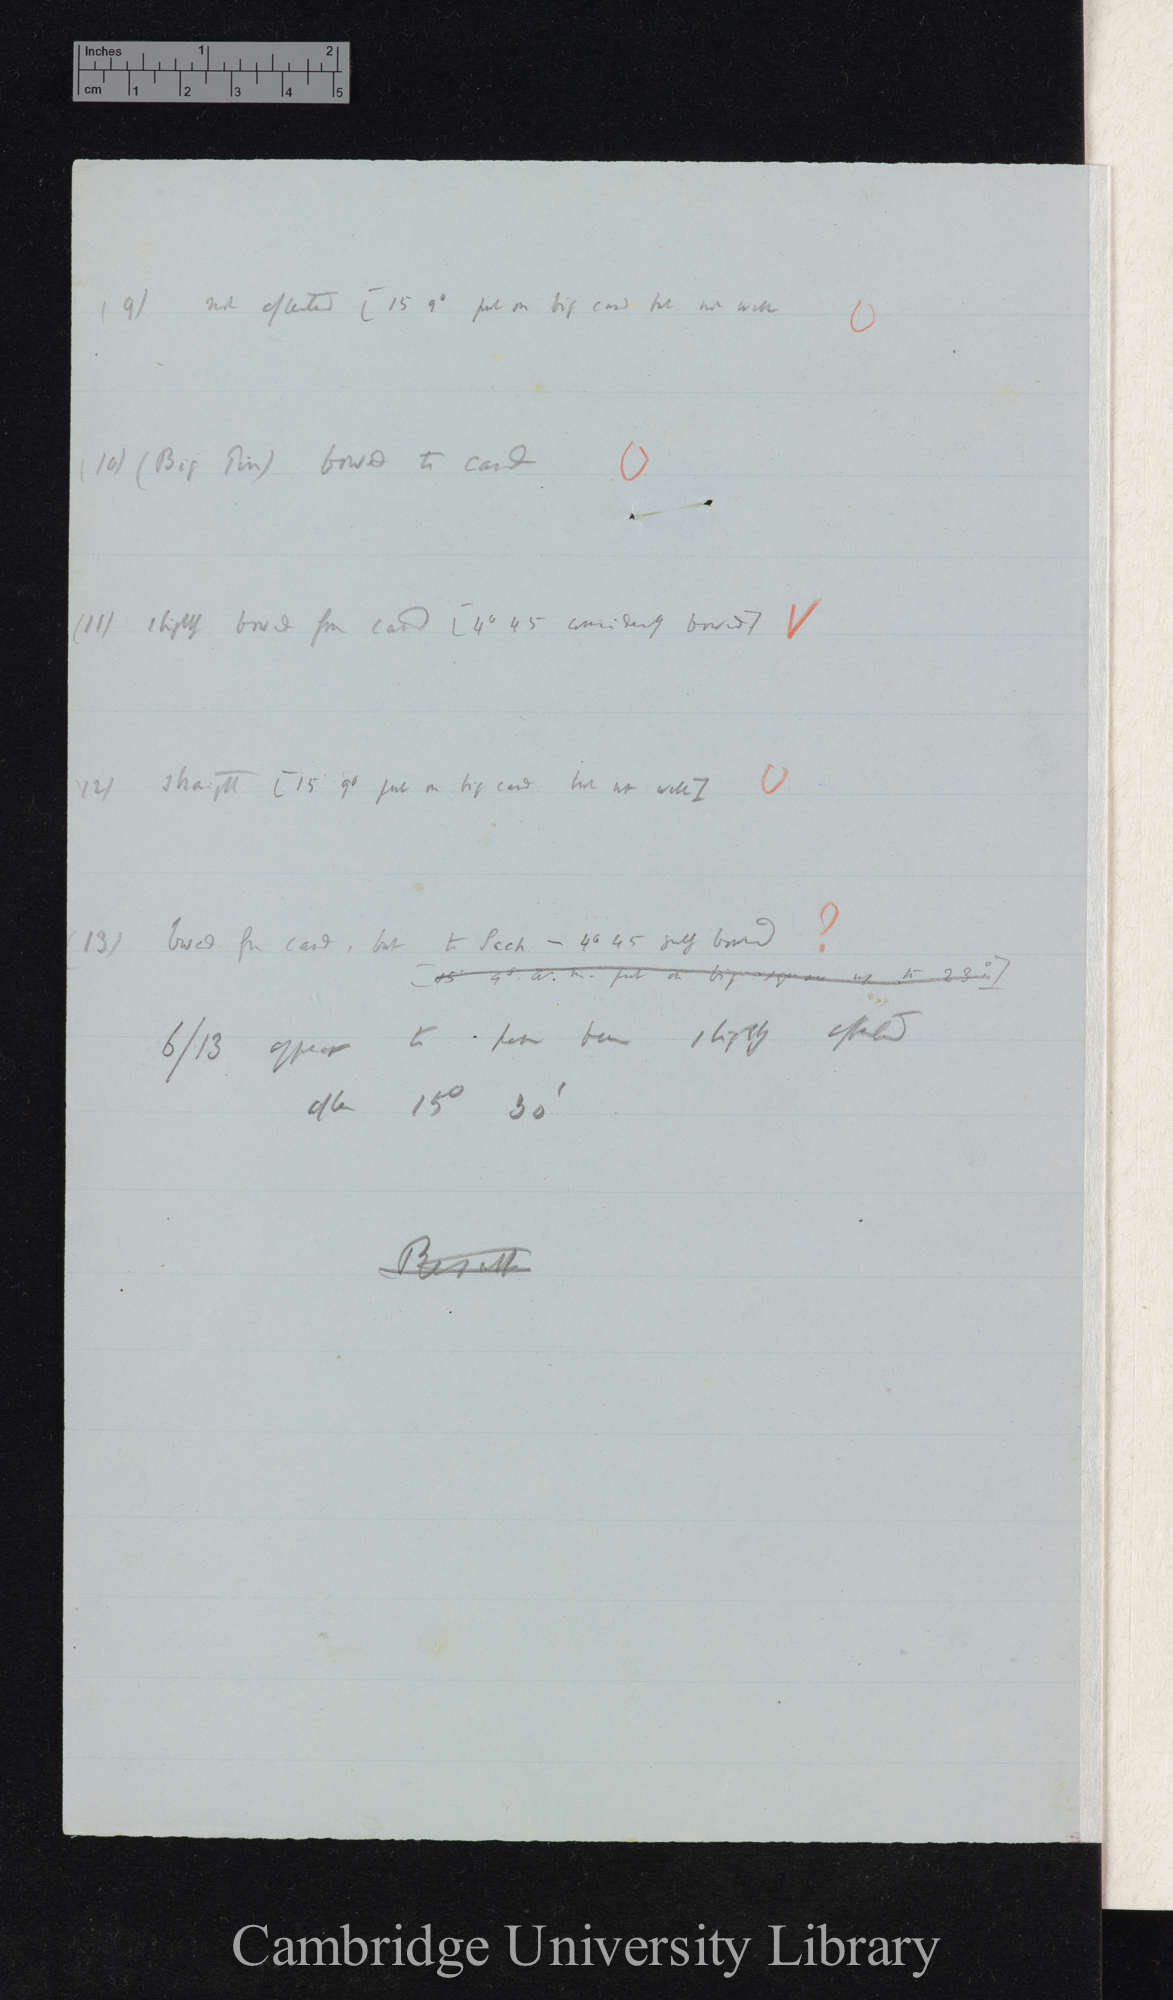 Inches 1 2
cm 1 2 3 4 5
(9) not affected [15 9° put on big card but not well O
(10) (Big Pin) bowed to card O
(11) slightly bowed from card [4° 45 considerably bowed] V
(12) straight [15 9° put on big card but not well] O
(13) bowed from card, but to Sach — 4° 45 bowed ?
[15 9° a.m. put on big up to 23°]
6/13 appear to have been slightly affected
after 15° 30'
Cambridge University Library